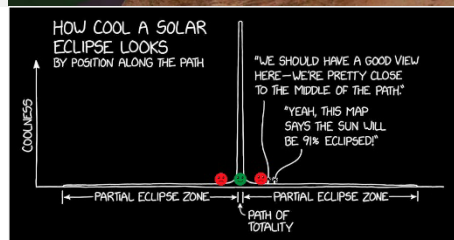 HOW COOL A SOLAR
ECLIPSE LOOKS
BY POSITION ALONG THE PATH
COOLNESS
"WE SHOULD HAVE A GOOD VIEW
HERE—WE'RE PRETTY CLOSE
TO THE MIDDLE OF THE PATH."
"YEAH, THIS MAP
SAYS THE SUN WILL
BE 91% ECLIPSED!"
PARTIAL ECLIPSE ZONE
PARTIAL ECLIPSE ZONE
PATH OF
TOTALITY